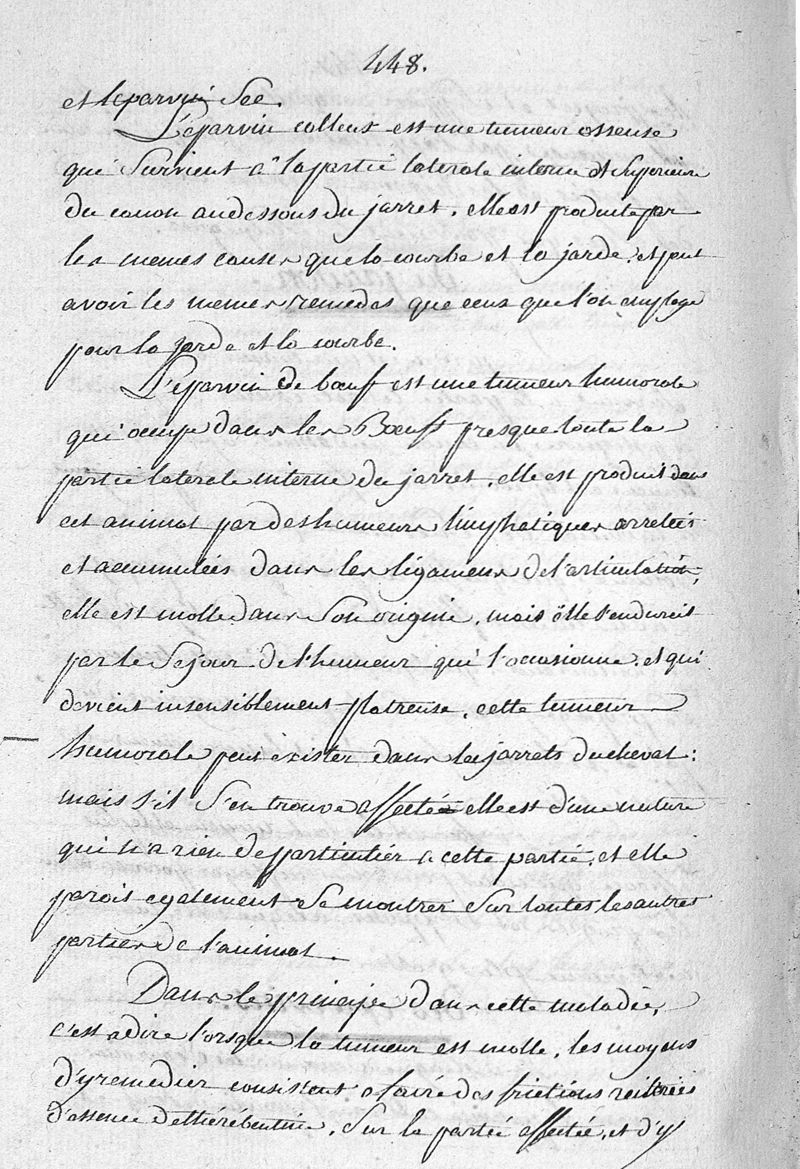 448.
et l'eparvin Sec.
L'eparvin calleux est une tumeur osseuse
qui Survient a la partie laterale interne et Superieure
du canon au dessous du jarret. elle est produite par
les memes causes que la courbe et la jarde. et peut
avoir les memes remedes que ceux que l'on employe
pour la jarde et la courbe.
L'eparvin de bœuf est une tumeur humorale
qui occupe dans les Bœufs presque toute la
partie laterale interne du jarret, elle est produit dans
cet animal par des humeurs limphatiques arretées
et accumulées dans les ligamens de l'articulation,
elle est molle dans Son origine, mais elle s'endurcit
par le Sejour de l'humeur qui l'occasionne. et qui
devient insensiblement platreuse. cette tumeur
humorale peut exister dans les jarrets du cheval:
mais s'il S'en trouve affecté elle est d'une nature
qui n'a rien de particulier a cette partie. et elle
parois egalement Se montrer Sur toutes les autres
parties de l'animal.
Dans le principe dans cette maladie,
c'est a dire lorsque la tumeur est molle, les moyens
d'y remedier consistent a faire des frictions reiterées
d'essence de thérébentine, Sur la partie affectée, et d'y